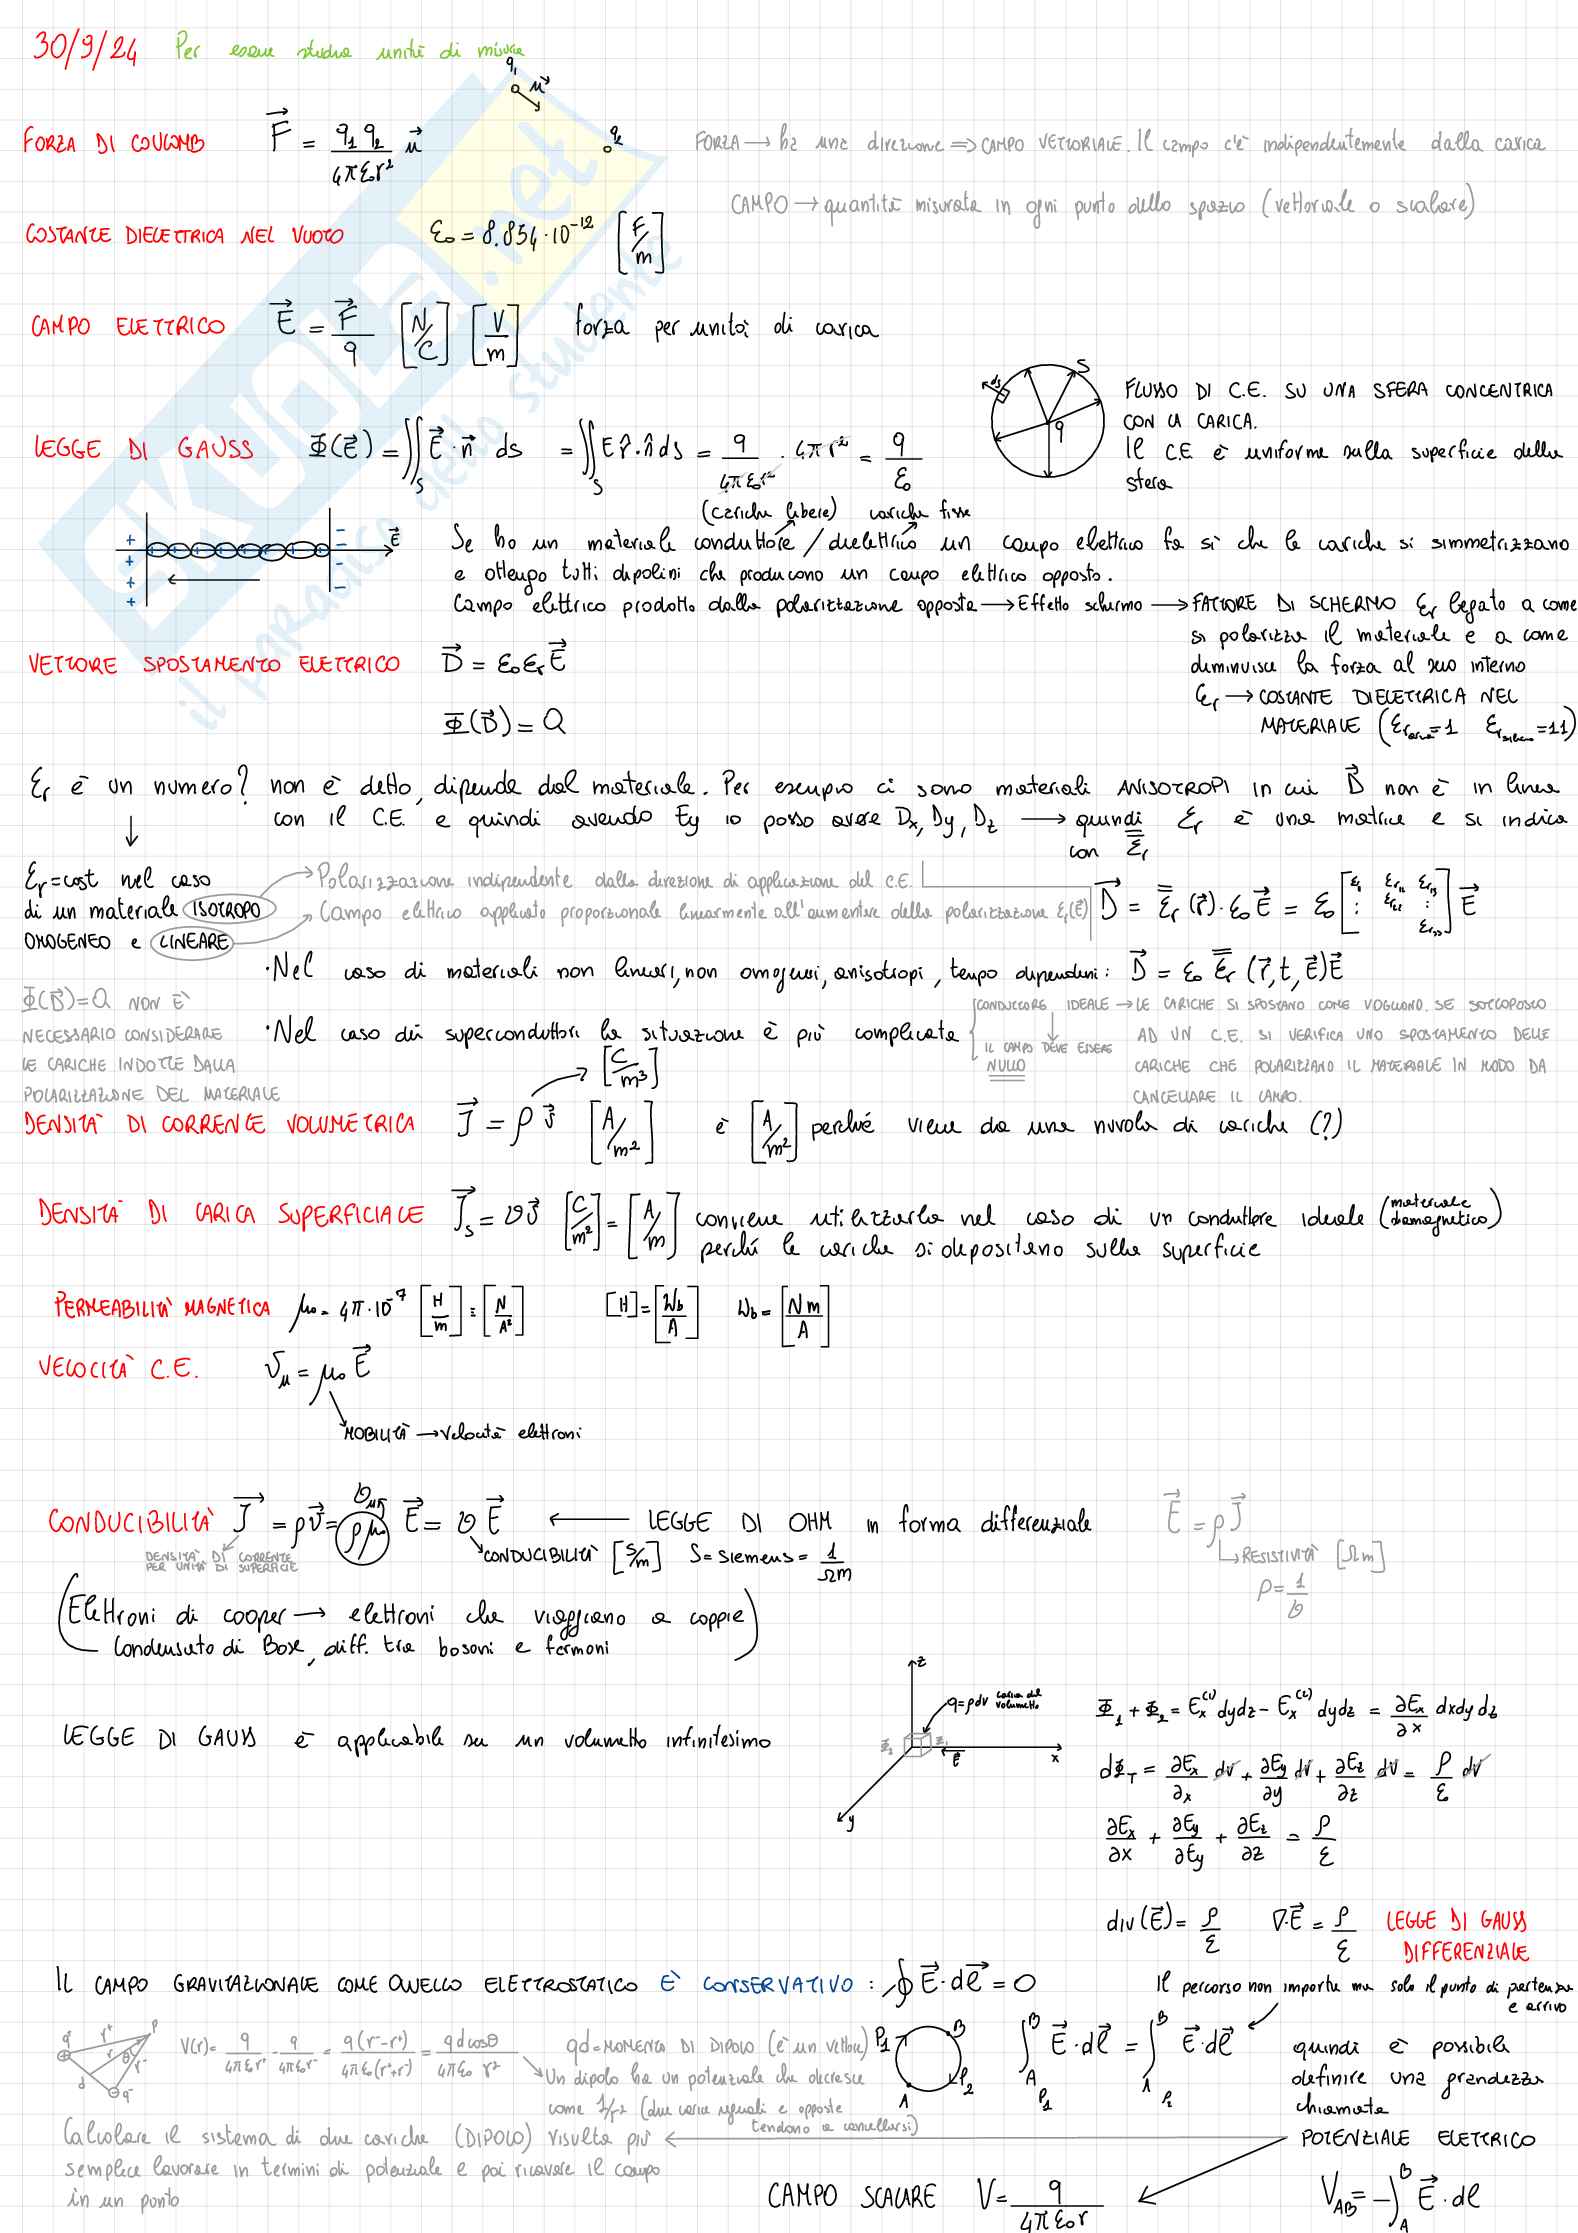 30/9/24 Per esame studia unità di misura
q₁ u⃗
q₂
FORZA DI COULOMB F⃗ = q₁ q₂ / 4πε₀r² u⃗
FORZA → ha una direzione ⇒ CAMPO VETTORIALE. Il campo c'è indipendentemente dalla carica
CAMPO → quantità misurata in ogni punto dello spazio (vettoriale o scalare)
COSTANTE DIELETTRICA NEL VUOTO ε₀ = 8.854·10⁻¹² [F/m]
CAMPO ELETTRICO E⃗ = F⃗/q [N/C] [V/m] forza per unità di carica
LEGGE DI GAUSS Φ(E⃗) = ∬_S E⃗·n⃗ ds = ∬_S E r̂·n̂ ds = q/4πε₀r² · 4πr² = q/ε₀
ds S q
FLUSSO DI C.E. SU UNA SFERA CONCENTRICA
CON LA CARICA.
Il C.E. è uniforme sulla superficie della
sfera
(cariche libere) cariche fisse
+ + + + E⃗ − − − −
Se ho un materiale conduttore / dielettrico un campo elettrico fa sì che le cariche si simmetrizzano
e ottengo tutti dipolini che producono un campo elettrico opposto.
Campo elettrico prodotto dalla polarizzazione opposta → Effetto schermo → FATTORE DI SCHERMO εr legato a come
si polarizza il materiale e a come
diminuisce la forza al suo interno
εr → COSTANTE DIELETTRICA NEL
MATERIALE (εr aria=1 εr silicio=11)
VETTORE SPOSTAMENTO ELETTRICO D⃗ = ε₀εrE⃗
Φ(D⃗) = Q
εr è un numero? non è detto, dipende dal materiale. Per esempio ci sono materiali ANISOTROPI in cui D⃗ non è in linea
con il C.E. e quindi avendo Ey io posso avere Dx, Dy, Dz → quindi εr è una matrice e si indica
con ε̿r
εr=cost nel caso
di un materiale ISOTROPO
OMOGENEO e LINEARE
Polarizzazione indipendente dalla direzione di applicazione del C.E.
Campo elettrico applicato proporzionale linearmente all'aumentare della polarizzazione εr(E⃗)
D⃗ = ε̿r(r⃗)·ε₀E⃗ = ε₀ [ε₁ εr₁₂ εr₁₃ : εr₂₂ : εr₃₃] E⃗
·Nel caso di materiali non lineari, non omogenei, anisotropi, tempo dipendenti: D⃗ = ε₀ ε̿r (r⃗,t,E⃗)E⃗
Φ(D⃗)=Q NON È
NECESSARIO CONSIDERARE
LE CARICHE INDOTTE DALLA
POLARIZZAZIONE DEL MATERIALE
·Nel caso dei superconduttori la situazione è più complicata
CONDUTTORE IDEALE → LE CARICHE SI SPOSTANO COME VOGLIONO. SE SOTTOPOSTO
AD UN C.E. SI VERIFICA UNO SPOSTAMENTO DELLE
CARICHE CHE POLARIZZANO IL MATERIALE IN MODO DA
CANCELLARE IL CAMPO.
IL CAMPO DEVE ESSERE
NULLO
[C/m³]
DENSITÀ DI CORRENTE VOLUMETRICA J⃗ = ρ v⃗ [A/m²] è [A/m²] perché viene da una nuvola di cariche (?)
DENSITÀ DI CARICA SUPERFICIALE J⃗s = σv⃗ [C/m²] = [A/m] conviene utilizzarla nel caso di un conduttore ideale (materiale diamagnetico)
perché le cariche si depositano sulla superficie
PERMEABILITÀ MAGNETICA μ₀ = 4π·10⁻⁷ [H/m] = [N/A²] [H]=[Wb/A] Wb=[Nm/A]
VELOCITÀ C.E. vμ = μ₀ E⃗
MOBILITÀ → velocità elettroni
CONDUCIBILITÀ J⃗ = ρv⃗ = ρμ E⃗ = σ E⃗ ← LEGGE DI OHM in forma differenziale
DENSITÀ DI CORRENTE
PER UNITÀ DI SUPERFICIE
CONDUCIBILITÀ [S/m] S=siemens= 1/Ωm
E⃗ = ρJ⃗
RESISTIVITÀ [Ωm]
ρ = 1/σ
(Elettroni di cooper → elettroni che viaggiano a coppie)
Condensato di Bose, diff. tra bosoni e fermoni
LEGGE DI GAUSS è applicabile su un volumetto infinitesimo
z q=ρdv carica del volumetto
E⃗ x y
Φ₁ + Φ₂ = Ex⁽¹⁾dydz − Ex⁽²⁾dydz = ∂Ex/∂x dxdydz
dΦT = ∂Ex/∂x dV + ∂Ey/∂y dV + ∂Ez/∂z dV = ρ/ε dV
∂Ex/∂x + ∂Ey/∂Ey + ∂Ez/∂z = ρ/ε
div(E⃗) = ρ/ε ∇·E⃗ = ρ/ε LEGGE DI GAUSS
DIFFERENZIALE
IL CAMPO GRAVITAZIONALE COME QUELLO ELETTROSTATICO È CONSERVATIVO: ∮E⃗·dl⃗ = 0
Il percorso non importa ma solo il punto di partenza
e arrivo
V(r)= q/4πε₀r⁺ − q/4πε₀r⁻ = q(r⁻−r⁺)/4πε₀(r⁺·r⁻) = qdcosθ/4πε₀ r²
qd=MOMENTO DI DIPOLO (è un vettore)
Un dipolo ha un potenziale che decresce
come 1/r² (due cariche uguali e opposte
tendono a cancellarsi)
P₁ B P₂ A
∫_A^B E⃗·dl⃗ = ∫_A^B E⃗·dl⃗
P₁ P₂
quindi è possibile
definire una grandezza
chiamata
POTENZIALE ELETTRICO
Calcolare il sistema di due cariche (DIPOLO) risulta più
semplice lavorare in termini di potenziale e poi ricavare il campo
in un punto
CAMPO SCALARE V = q/4πε₀r
V_AB = −∫_A^B E⃗·dl
SKUOLA.net
il paradiso dello studente